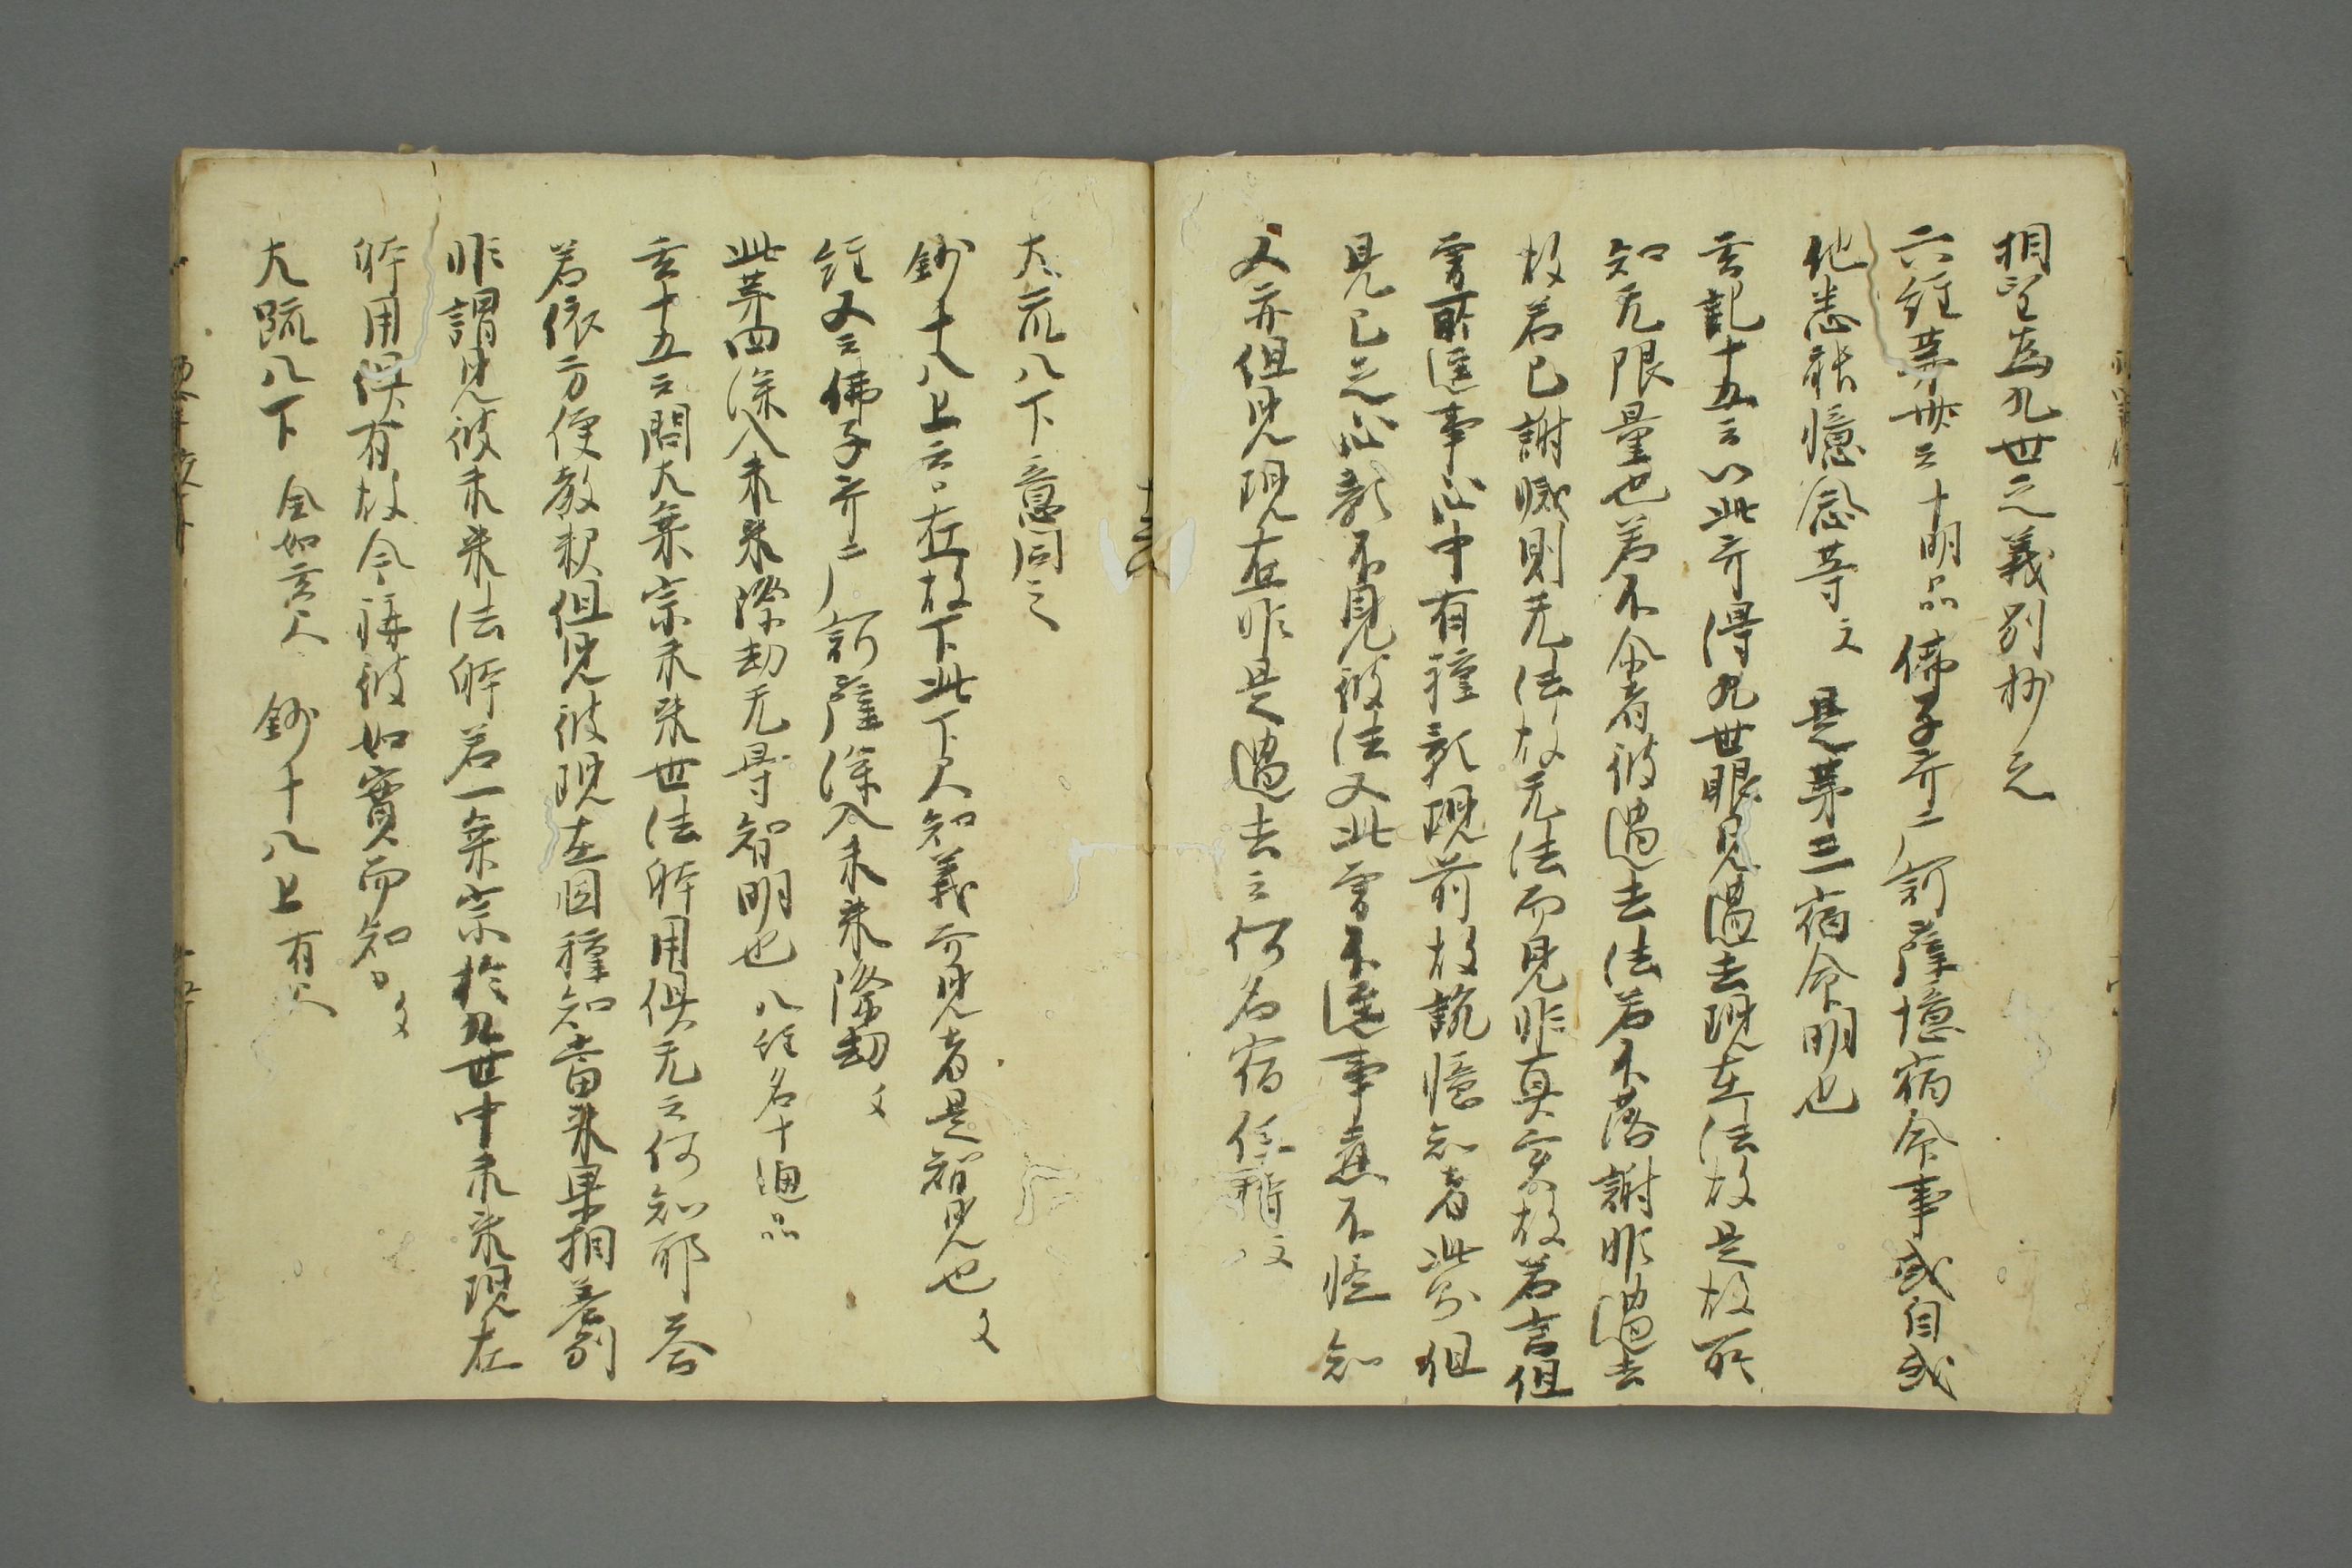 相望為九世之義別抄之
六経第卅云十明品佛子菩薩摩訶薩憶宿命事或自或
他悉能憶念等文 是第三宿命明也
玄記十五云以此菩得九世眼見過去現在法故是故所
知无限量也若不介者彼過去法若不落謝非過去
故若已謝滅則无法故无法而見非真実故若言但
曾所逕事心中有種影現前故説憶知者此即但
見已之心影不見彼法又此曾不逕事応不能知
又亦但見現在非是過去云何名宿住智文
大疏八下意同之
鈔十八上云在故下此下文知義亦見者是智見也文
経又云佛子菩薩摩訶薩深入未来際劫文
此第四深入未来際劫无碍智明也 八経名十通品
玄十五云問大乗宗未来世法躰用倶无云何知耶答
若依二方便教釈但見彼現在因種知当来果相差別
非謂見彼未来法躰若一乗宗於九世中未来現在
躰用倶有故今称彼如實而知文
大疏八下 全如玄文 鈔十八上有文